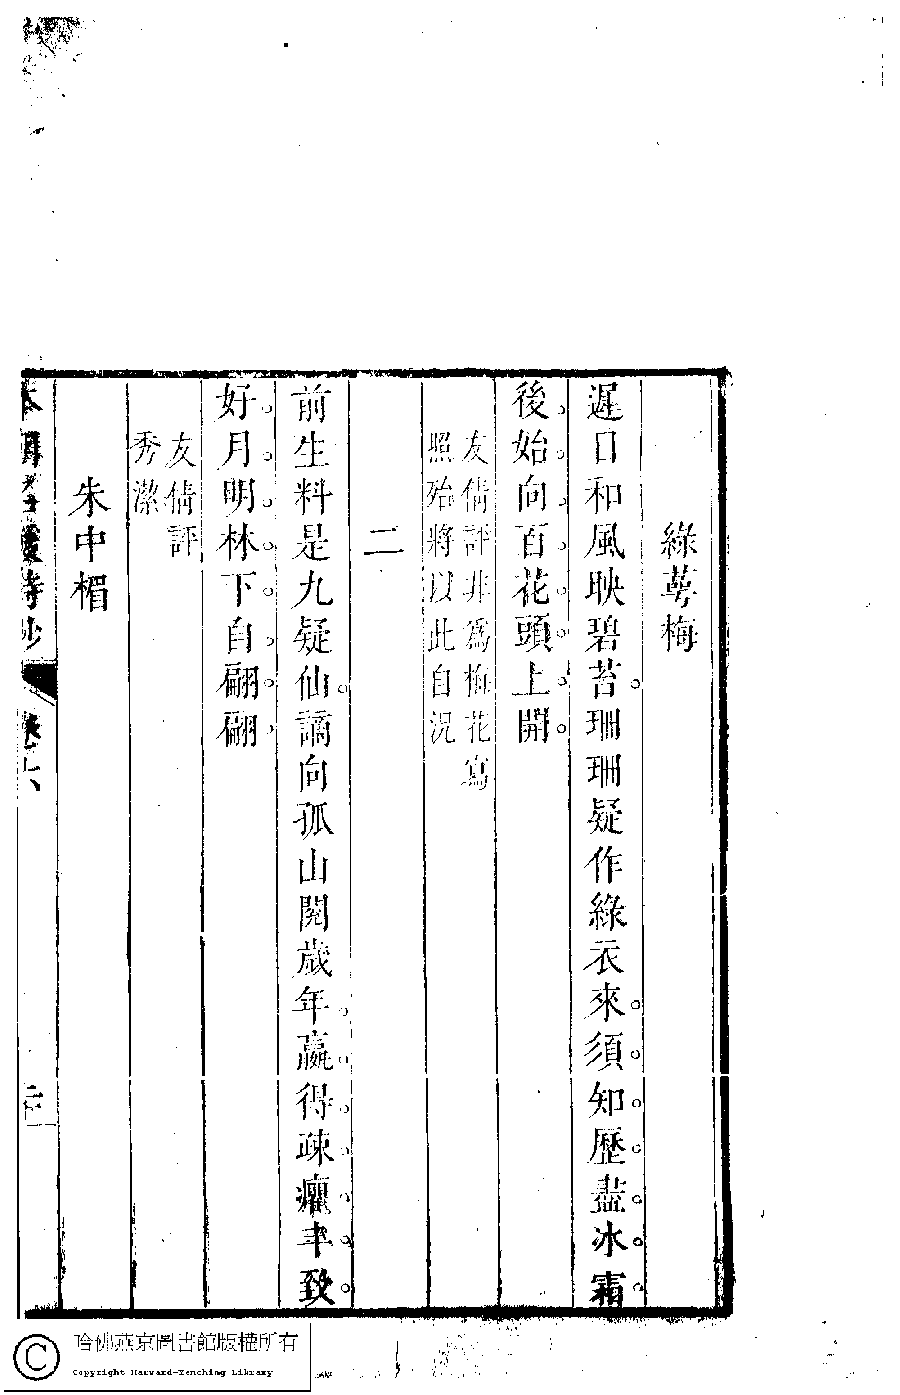 綠萼梅
遲日和風映碧苔珊珊疑作綠衣來須知歷盡冰霜
後始向百花頭上開
友倩評非爲梅花寫
照殆將以此自況
二
前生料是九疑仙謫向孤山閱歲年贏得疎癯丰致
好月明林下自翩翩
友倩評
秀潔
朱中楣
本朝名媛詩鈔
卷六
哈佛燕京圖書館版權所有
Copyright Harvard-Yenching Library